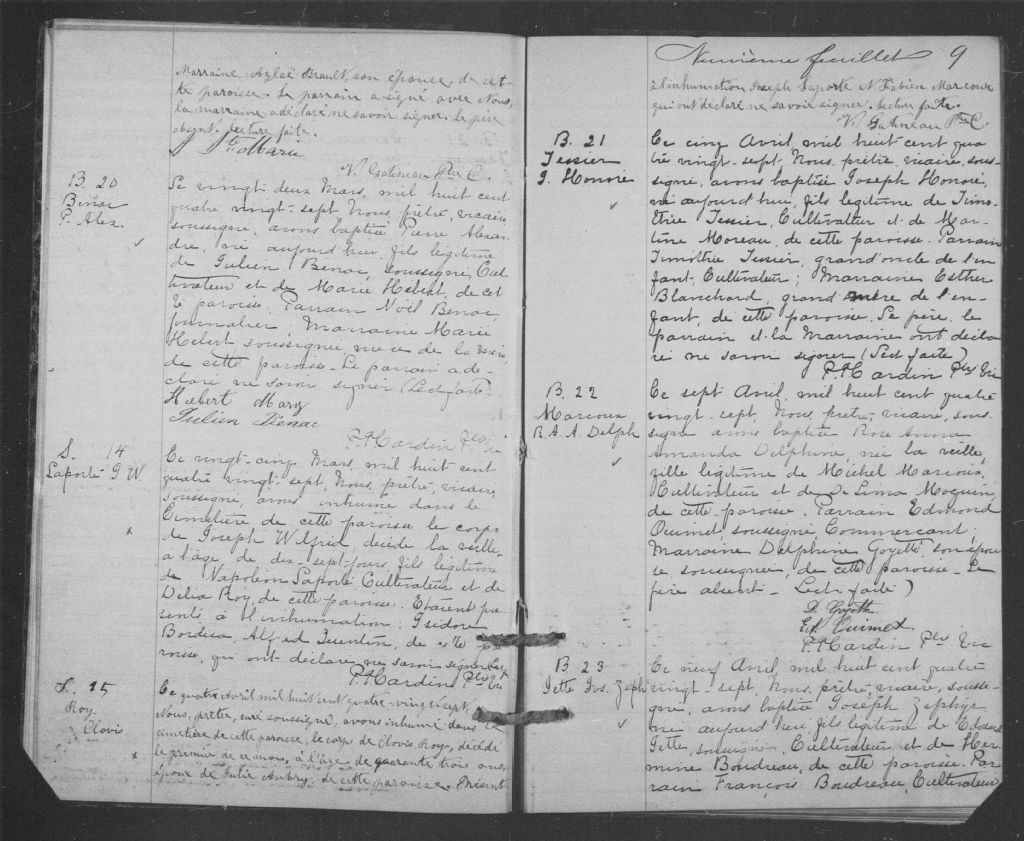 Marraine Azlaë Brault, son épouse, de cet-
te paroisse. Le parrain a signé avec Nous,
la marraine a déclaré ne savoir signer. Le père
absent. Lecture faite.
J Ste Marie
V. Gatineau Ptre C.
B. 20
Benac
P. Alex.
Le vingt-deux Mars, mil huit cent
quatre vingt-sept, Nous, prêtre, vicaire
soussigné, avons baptisé Pierre Alexan-
dre, né aujourd'hui, fils légitime
de Julien Benac, soussigné, Cul-
tivateur et de Marie Hebert, de cet
te paroisse. Parrain Noël Benac,
journalier, Marraine Marie
Hebert soussignée niece de la mère,
de cette paroisse. Le parrain a dé-
claré ne savoir signer (Lect. faite)
Hebert Mary
Julien Bénac
P. Hardin Ptre Vic
S. 14
Laporte J. W.
Ce vingt-cinq Mars, mil huit cent
quatre vingt-sept, Nous, prêtre, vicaire,
soussigné, avons inhumé dans le
Cimetière de cette paroisse le corps
de Joseph Wilfrid, décédé la veille,
à l'âge de dix-sept jours, fils légitime
de Napoléon Laporte Cultivateur et de
Delia Roy, de cette paroisse. Etaient pré
sents à l'inhumation: Isidore
Bordua, Alfred Quentin, de cette pa-
roisse, qui ont déclaré ne savoir signer
P. Hardin Ptre Vic
S. 15
Roy
Clovis
Ce quatre Avril mil huit cent quatre-vingt-sept,
Nous, prêtre, curé soussigné, avons inhumé dans le
cimetière de cette paroisse, le corps de Clovis Roy, décédé
le premier de ce mois, à l'âge de quarante trois ans,
époux de Julie Aubry, de cette paroisse. Présent
Neuvième feuillet 9
à l'inhumation Joseph Laporte et Fabien Marcoux
qui ont déclaré ne savoir signer. Lecture faite.
V. Gatineau Ptre C.
B. 21
Tessier
J. Honoré
Ce cinq Avril, mil huit cent qua
tre vingt-sept, Nous, prêtre, vicaire, sous-
signé, avons baptisé Joseph Honoré,
né aujourd'hui, fils légitime de Timo-
thée Tessier, Cultivateur et de Mar-
tine Moreau, de cette paroisse. Parrain
Timothée Tessier, grand'oncle de l'en
fant, Cultivateur; Marraine Esther
Blanchard, grand'mère de l'en-
fant, de cette paroisse. Le père, le
parrain et la Marraine ont décla
ré ne savoir signer (Lect faite)
P. Hardin Ptre Vic
B. 22
Marcoux
R. A. A. Delph
Ce sept Avril, mil huit cent quatre
vingt-sept, Nous, prêtre, vicaire, sous-
signé avons baptisé Rose Anna
Amanda Delphine, née la veille,
fille légitime de Michel Marcoux,
Cultivateur et de De Lima Moquin,
de cette paroisse. Parrain Edmond
Ouimet soussigné, Commerçant;
Marraine Delphine Goyette, son épou
se, soussignée, de cette paroisse. Le
père absent. Lect. faite)
D. Goyette
Ed. Ouimet
P. Hardin Ptre Vic
B 23
Jetté Jos. Zeph
Ce neuf Avril, mil huit cent quatre
vingt-sept, Nous, prêtre-vicaire, soussi-
gné, avons baptisé Joseph Zéphyr
né aujourd'hui, fils légitime de Edouard
Jetté, soussigné, Cultivateur et de Her
mine Boudreau, de cette paroisse. Par
rain François Boudreau, Cultivateur